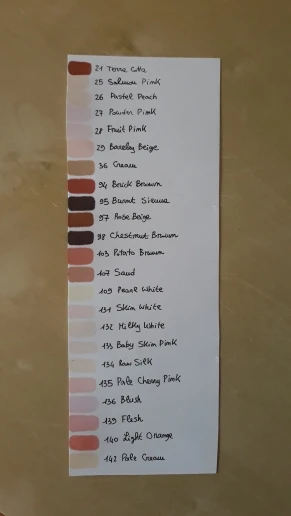 21 Terra Cotta
25 Salmon Pink
26 Pastel Peach
27 Powder Pink
28 Fruit Pink
29 Barely Beige
36 Cream
94 Brick Brown
95 Burnt Sienna
97 Rose Beige
98 Chestnut Brown
103 Potato Brown
107 Sand
109 Pearl White
131 Skin White
132 Milky White
133 Baby Skin Pink
134 Raw Silk
135 Pale Cherry Pink
136 Blush
139 Flesh
140 Light Orange
142 Pale Cream